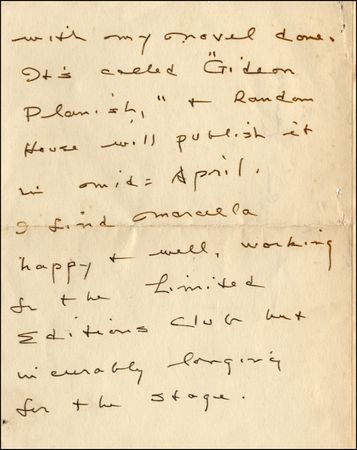 with my novel done.
It's called "Gideon
Planish," & Random
House will publish it
in mid= April.
I find Marcella
happy & well, working
for the Limited
Editions Club but
incurably longing
for the stage.